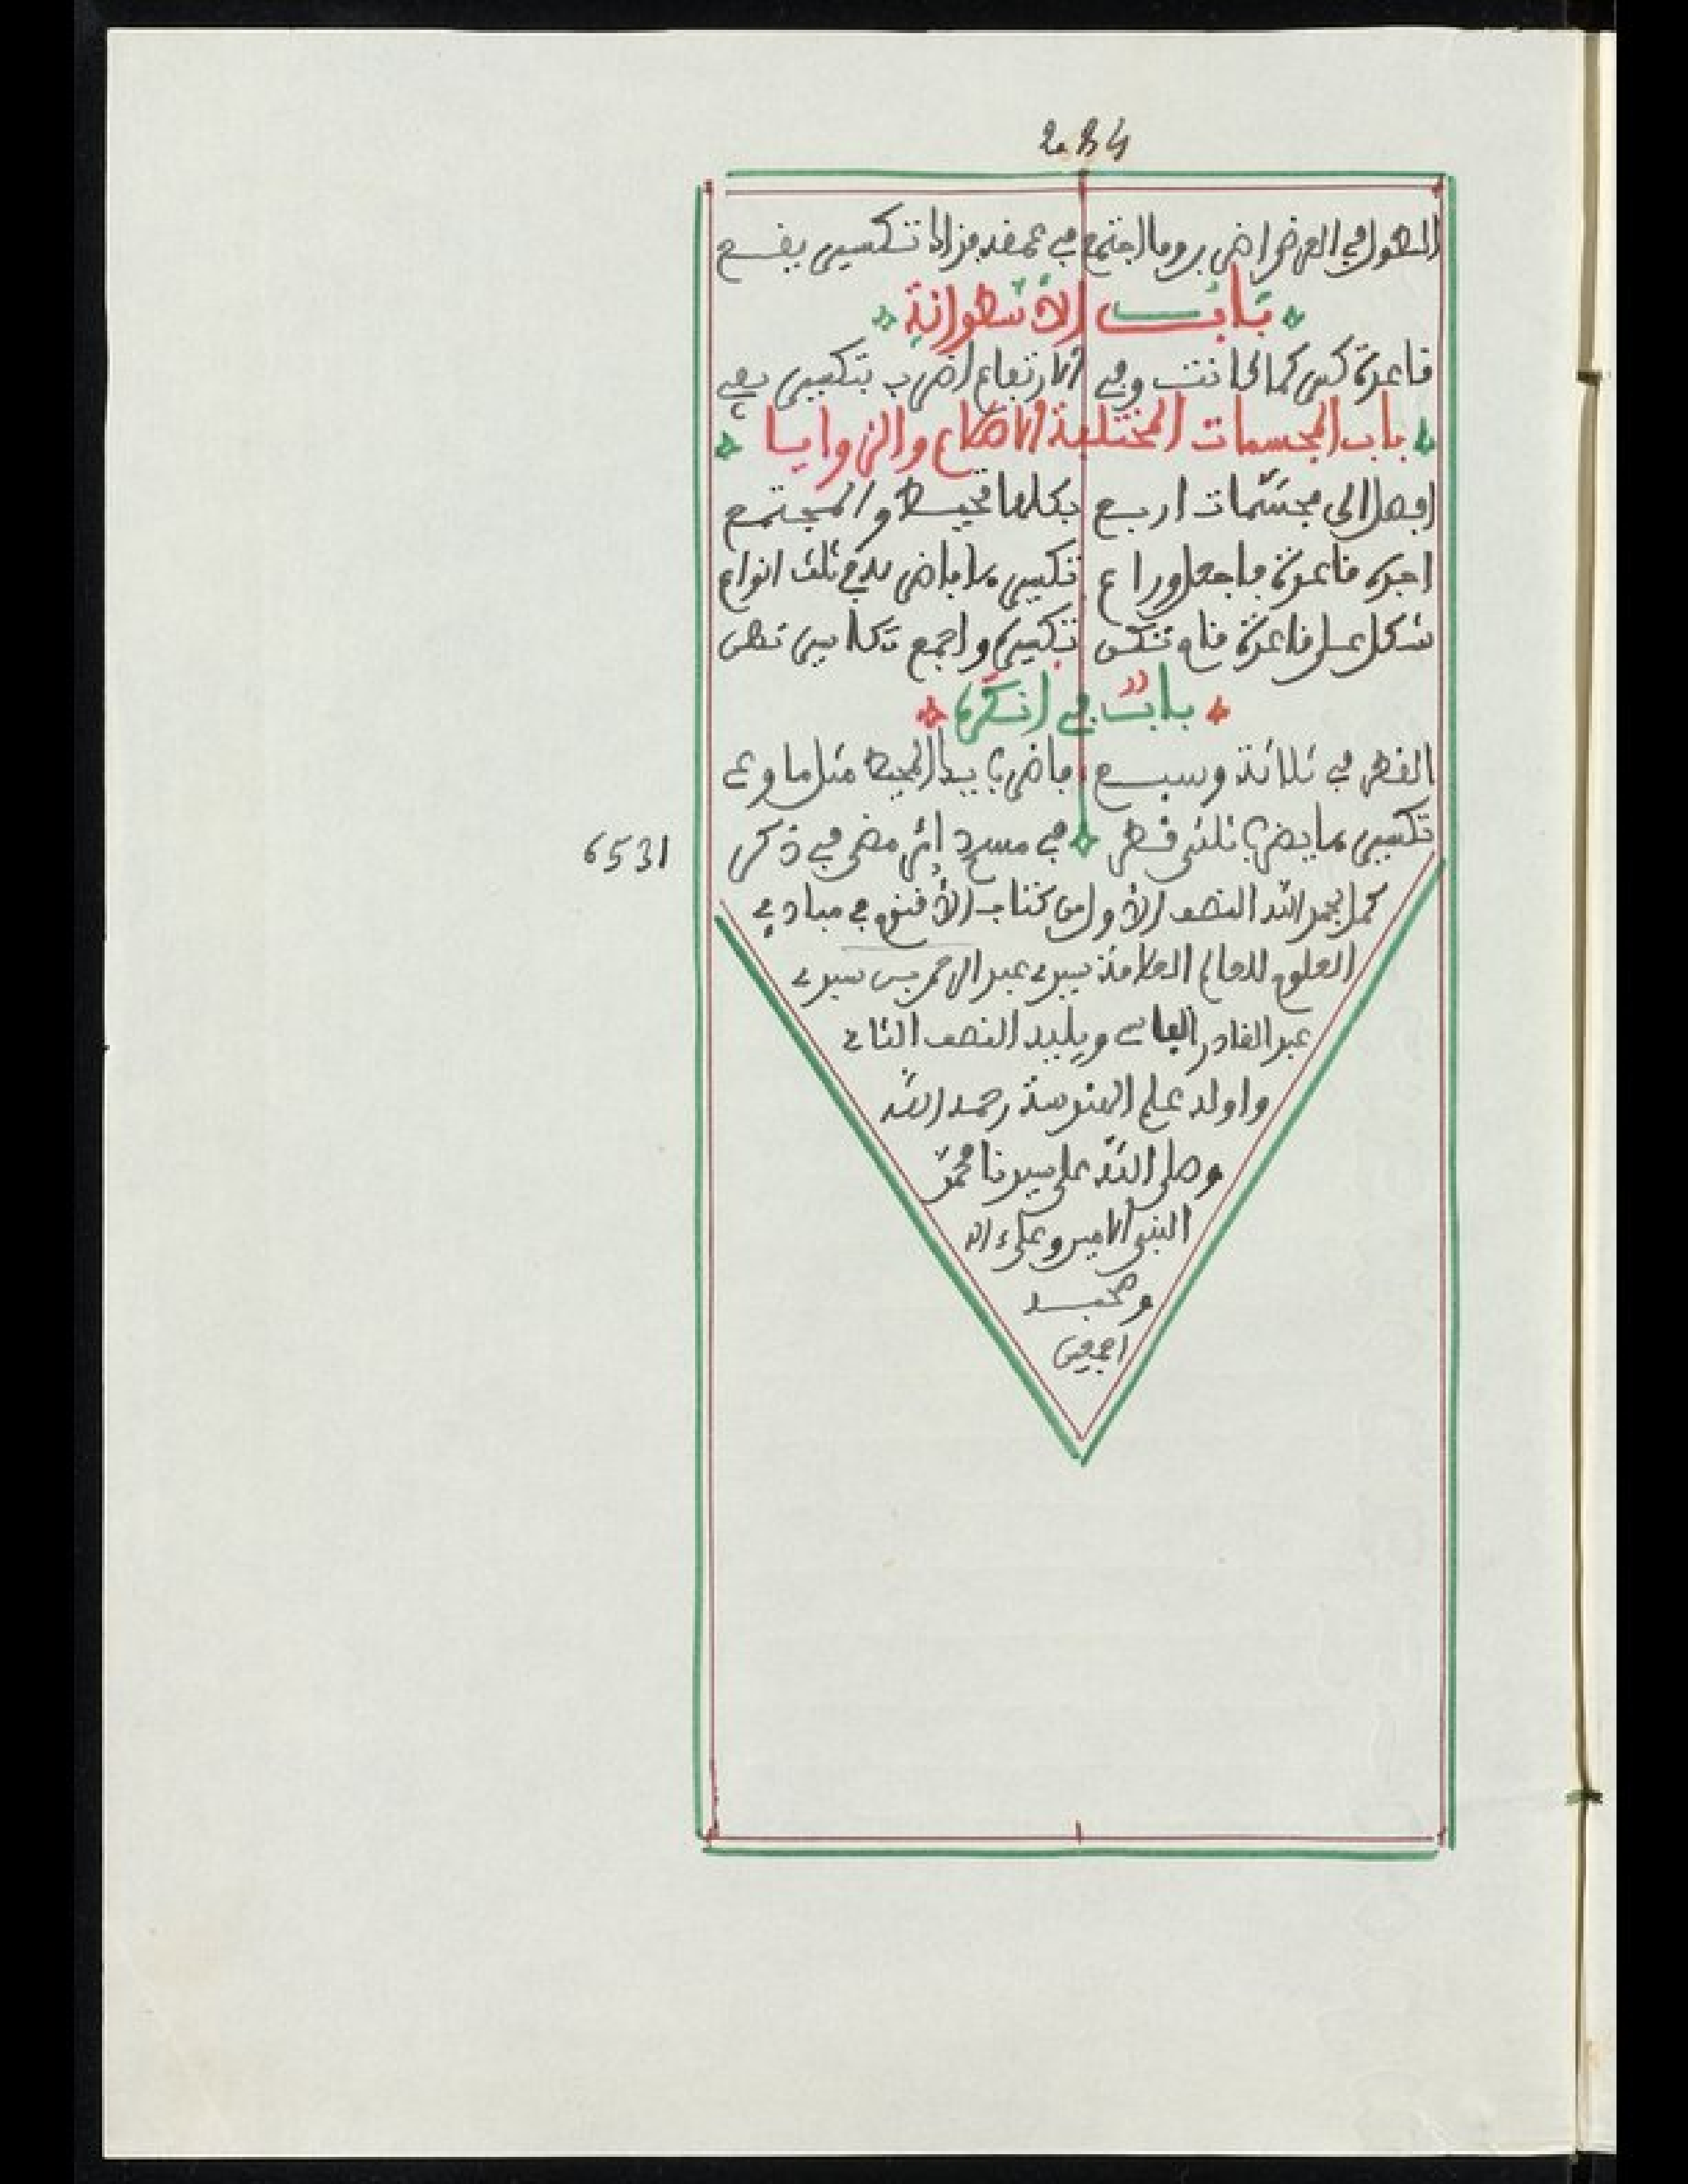 284
الطول في العرض اضرب وما اجتمع في عمقه فزالا تكسير يقع
باب الأسطوانة
قاعدة كسر كما كانت وفي الارتفاع اضرب بتكسير يفي
باب المجسمات المختلفة الاضلاع والزوايا
افصل الى مجسمات اربع بكلها تحيط والمجتمع
قاعدة فاجعل تكسير ثلث انواع
شكل على قاعدة تكسير واجمع تكاسير
باب في الكرة
القطر في ثلاثة وسبع فاضرب المحيط مثل ما وعى
تكسير ثلثي قطر في مسح مضى في ذكر
6531
كمل بحمد الله النصف الأول من كتاب الأقنوم في مبادي
العلوم للعالم العلامة سيدي عبد الرحمن بن سيدي
عبد القادر الفاسي ويليه النصف الثاني
واوله علم الهندسة رحمه الله
وصلى الله على سيدنا محمد
النبي الامين وعلى ءاله
وصحبه
اجمعين